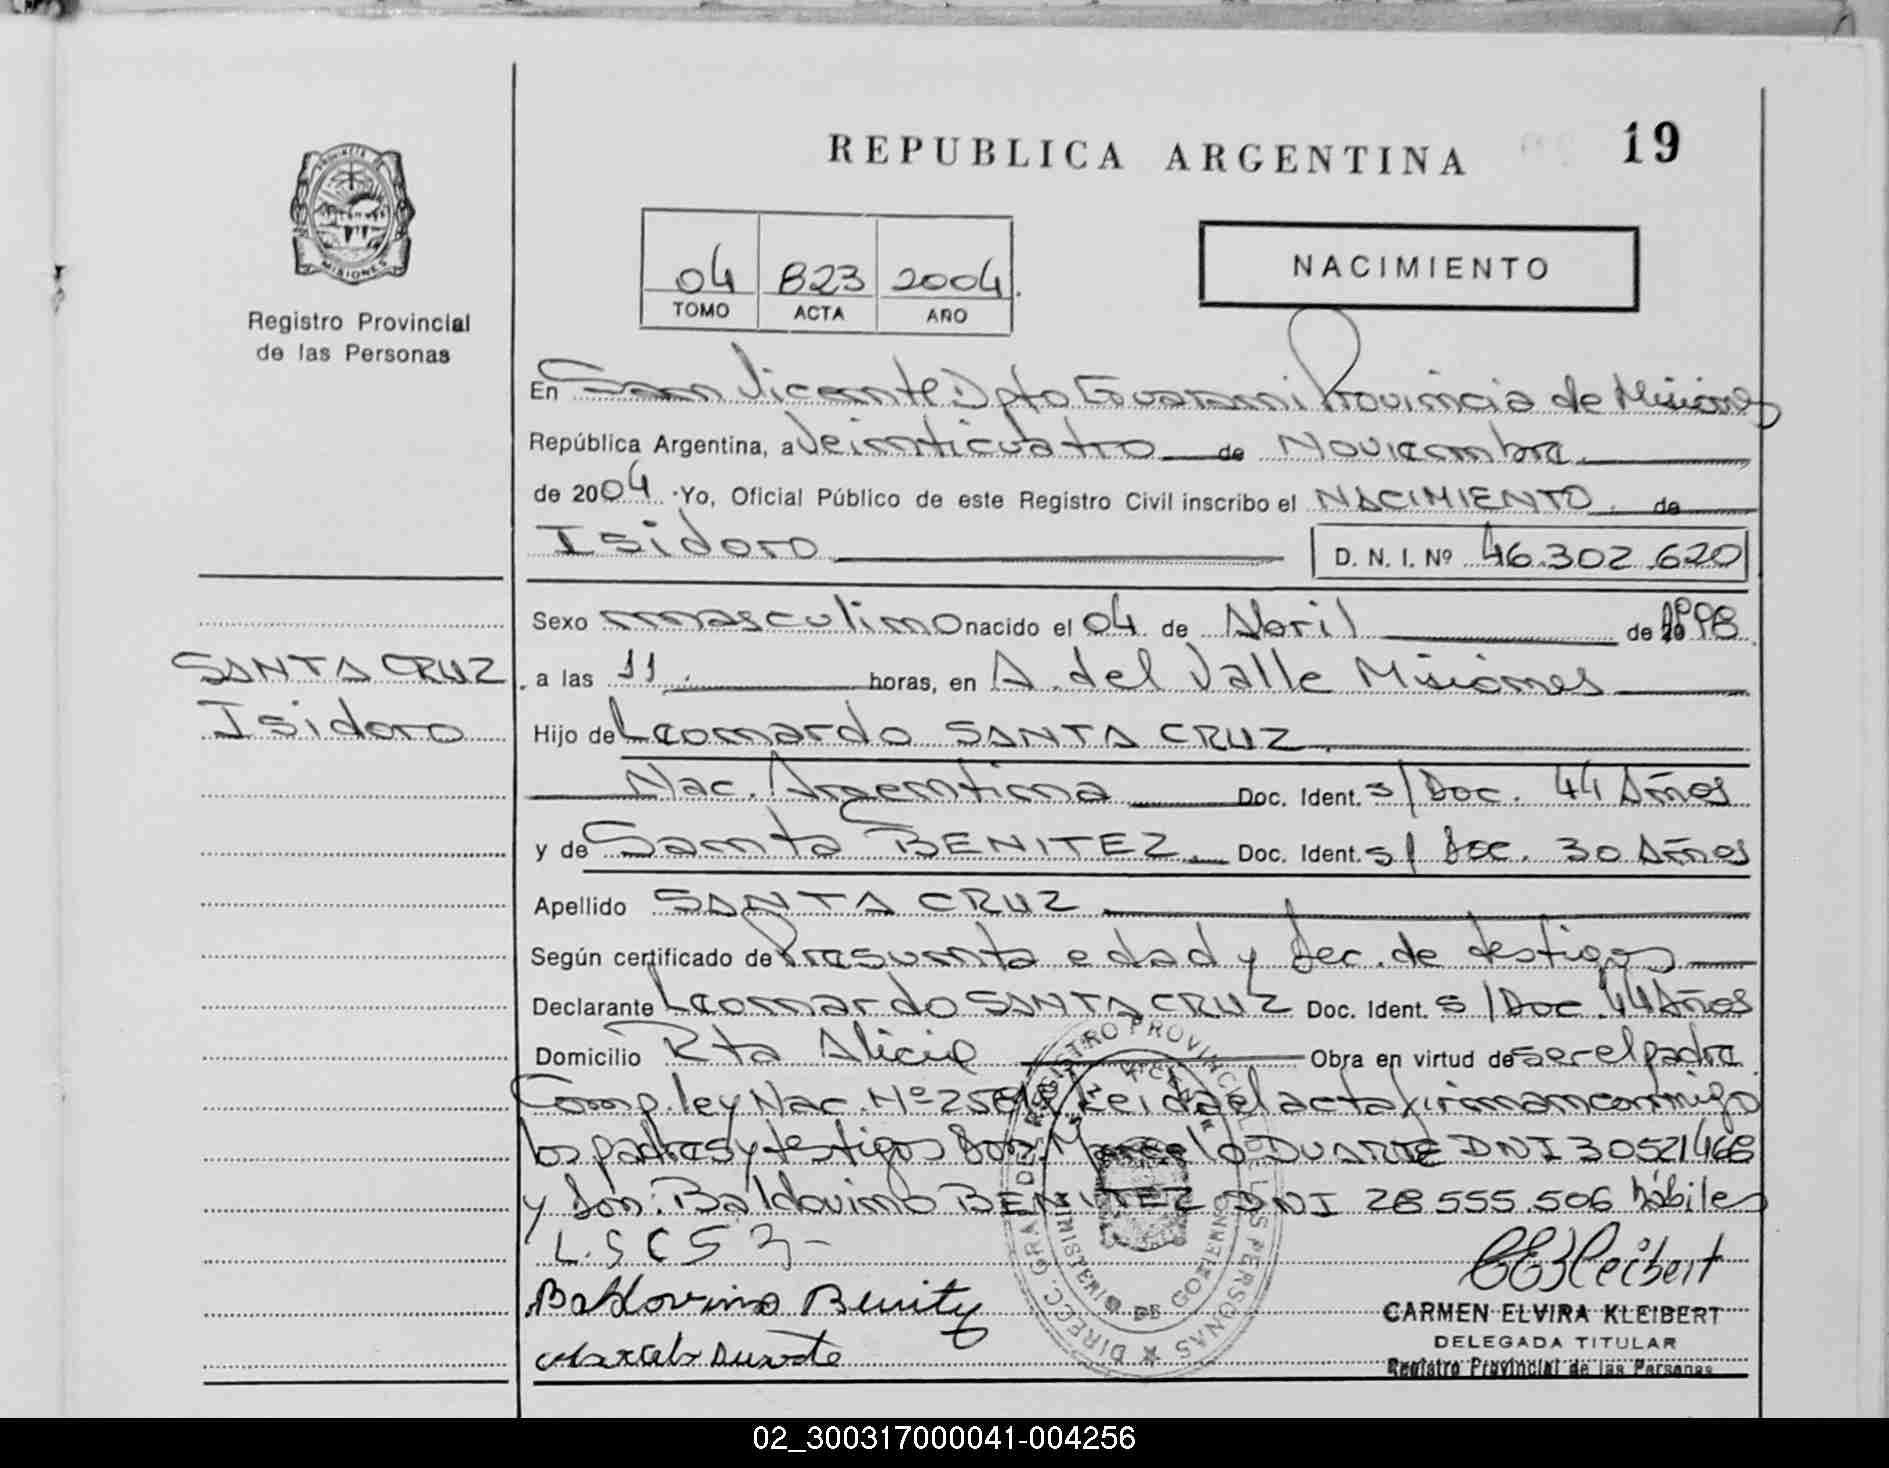 REPUBLICA ARGENTINA
19
PROVINCIA DE MISIONES
Registro Provincial
de las Personas
04 823 2004.
TOMO ACTA AÑO
NACIMIENTO
En San Vicente Dpto Guarani Provincia de Misiones
República Argentina, a Veinticuatro de Noviembre
de 2004 Yo, Oficial Público de este Registro Civil inscribo el NACIMIENTO. de
Isidoro D. N. I. Nº 46.302.620
Sexo masculino nacido el 04 de Abril de 1998
SANTA CRUZ
Isidoro
a las 11. horas, en A. del Valle Misiones
Hijo de Leonardo SANTA CRUZ.
Nac. Argentina Doc. Ident. s/Doc. 44 Años
y de Santa BENITEZ. Doc. Ident. s/ Doc. 30 Años
Apellido SANTA CRUZ
Según certificado de Presunta edad y Dec. de testigos
Declarante Leonardo SANTA CRUZ Doc. Ident. s/Doc. 44 Años
Domicilio Rta Alicia Obra en virtud de ser el padre
Comp. ley Nac. Nº Leida el acta firman conmigo
los padres y testigos Don: Marcelo DUARTE DNI 30521468
y Don: Baldovino BENITEZ DNI 28.555.506 hábiles
L.SC53-
Baldovino Benitez
Marcelo Duarte
CARMEN ELVIRA KLEIBERT
DELEGADA TITULAR
Registro Provincial de las Personas
DIRECC. GRAL. DE REGISTRO PROVINCIAL DE LAS PERSONAS
MINISTERIO DE GOBIERNO
02_300317000041-004256